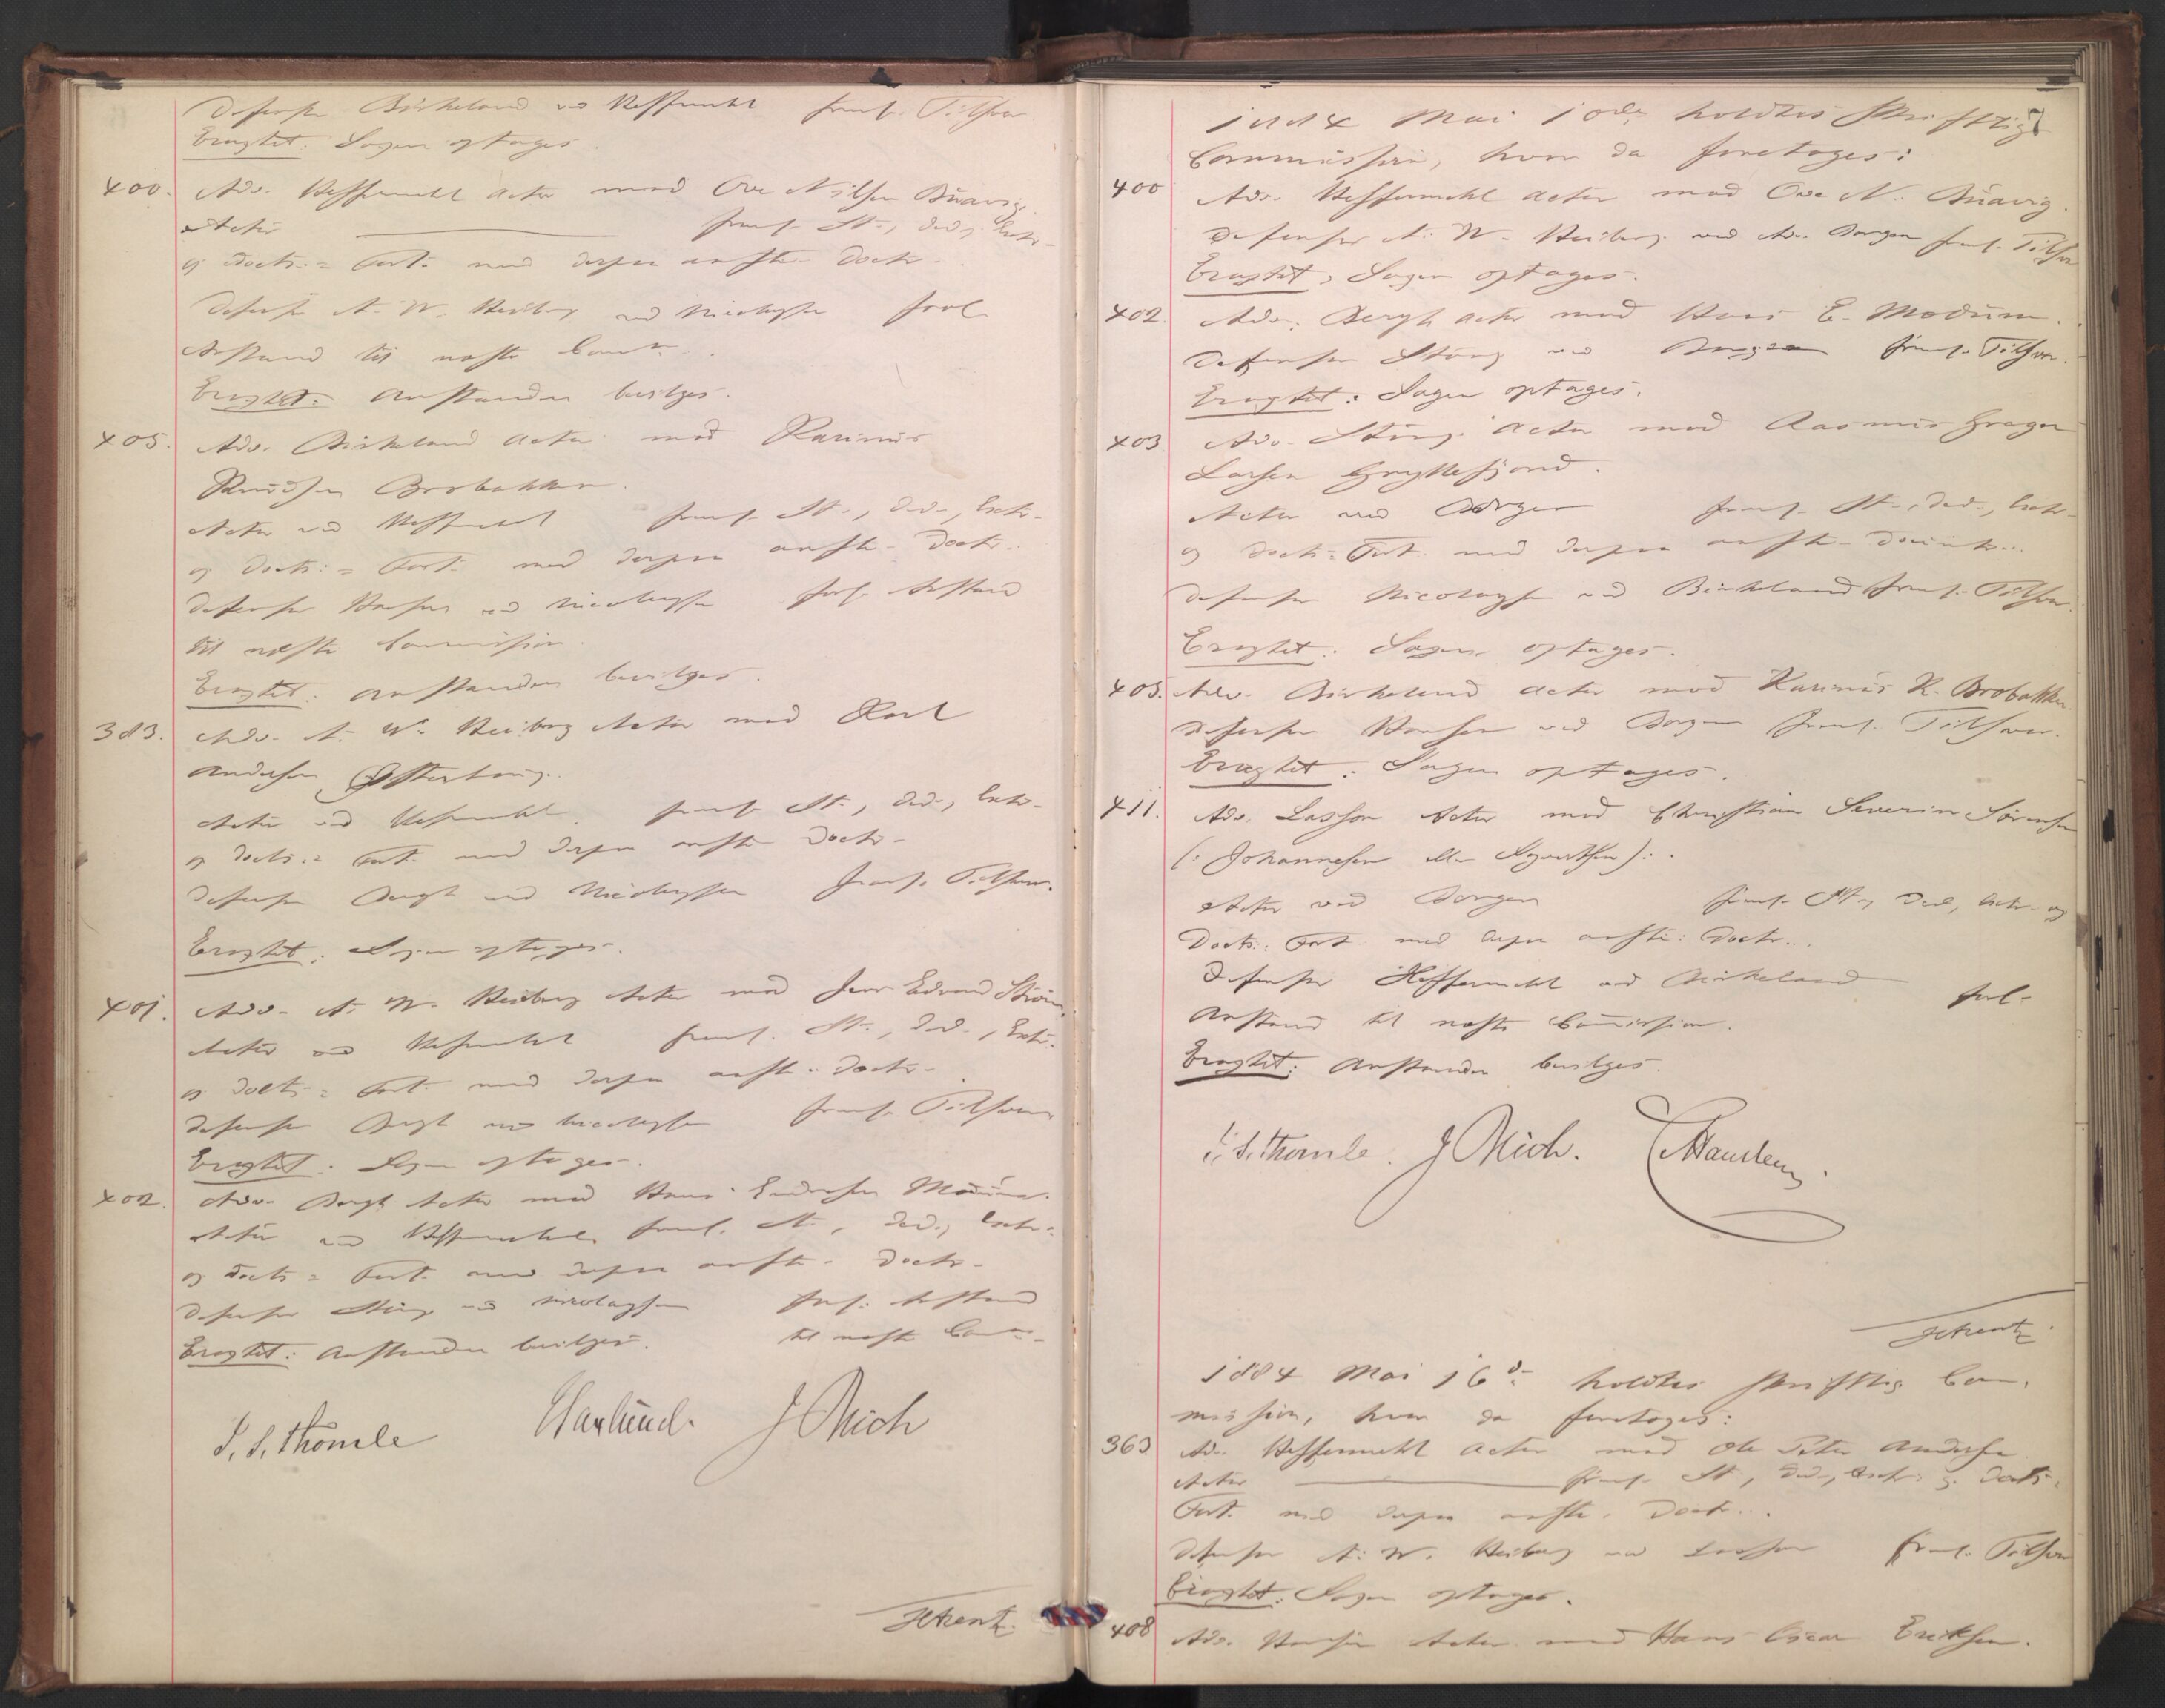 Defensor Birkeland ved Heffermehl freml. Tilsvar.
Eragtet: Sagen optages.
400. Adv. Heffermehl Actor mod Ove Nilsen Buavig.
Actor freml. St., Ded., Extr.
og Doctr. = Fort. med derpaa anfte. Doctr.
Defensor A. W. Heiberg ved Nicolaysen forl.
Anstand til næste Comm.
Eragtet: Anstanden bevilges.
405. Adv. Birkeland Actor mod Karinius
Knudsen Brobakken.
Actor ved Heffermehl freml. St., Ded., Extr.
og Doctr. = Fort. med derpaa anfte. Doctr.
Defensor Hansen ved Nicolaysen forl. Anstand
til næste Commission.
Eragtet: Anstanden bevilges.
383. Adv. A. W. Heiberg Actor mod Karl
Andersen
Actor ved Heffermehl freml. St., Ded., Extr.
og Doctr. = Fort. med derpaa anfte. Doctr.
Defensor Bergh ved Nicolaysen freml. Tilsvar.
Eragtet: Sagen optages.
401. Adv. A. W. Heiberg Actor mod Jens Edvard Ström.
Actor ved Heffermehl freml. St., Ded., Extr.
og Doctr. = Fort. med derpaa anfte. Doctr.
Defensor Bergh ved Nicolaysen freml. Tilsvar
Eragtet: Sagen optages.
402. Adv. Bergh Actor mod Hans Endresen Modum.
Actor ved Heffermehl freml. St., Ded., Extr.
og Doctr. = Fort. med derpaa anfte. Doctr.
Defensor Stang ved Nicolaysen forl. Anstand
Eragtet: Anstanden bevilges. til næste Comm.
I. S. Thomle Haslund. J Mich
1884 Mai 10de holdtes skriftlig
Commission, hvor da foretoges:
400 Adv. Heffermehl Actor mod Ove N. Buavig.
Defensor A. W. Heiberg ved Adv. Borgen freml. Tilsvar
Eragtet: Sagen optages.
402. Adv. Bergh Actor mod Hans E. Modum.
Defensor Stang ved Borgen freml. Tilsvar.
Eragtet: Sagen optages.
403 Adv. Stang Actor mod Rasmus
Larsen Gryllefjord.
Actor ved Borgen freml. St., Ded., Extr.
og Doctr. Fort. med derpaa anfte. Documtr.
Defensor Nicolaysen ved Birkeland freml. Tilsvar.
Eragtet: Sagen optages.
405. Adv. Birkeland Actor mod Karinius K. Brobakken.
Defensor Hansen ved Borgen freml. Tilsvar.
Eragtet: Sagen optages.
411. Adv. Lasson Actor mod Christian Severin Sörensen
(: Johannesen eller Syvertsen):.
Actor ved Borgen freml. St., Ded., Extr. og
Doctr. Fort. med derpaa anfte. Doctr.
Defensor Heffermehl ved Birkeland forl.
Anstand til næste Commission.
Eragtet: Anstanden bevilges.
I. S. Thomle. J Mich.
1884 Mai 16de holdtes skriftlig Com-
mission, hvor da foretoges:
363 Adv. Heffermehl Actor mod Ole Peter Andersen
Actor freml. St., Ded., Extr. og Doctr.
Fort. med derpaa anfte. Doctr.
Defensor A. W. Heiberg ved Lasson freml. Tilsvar
Eragtet: Sagen optages.
408 Adv. Hansen Actor mod Hans Oscar Eriksen.